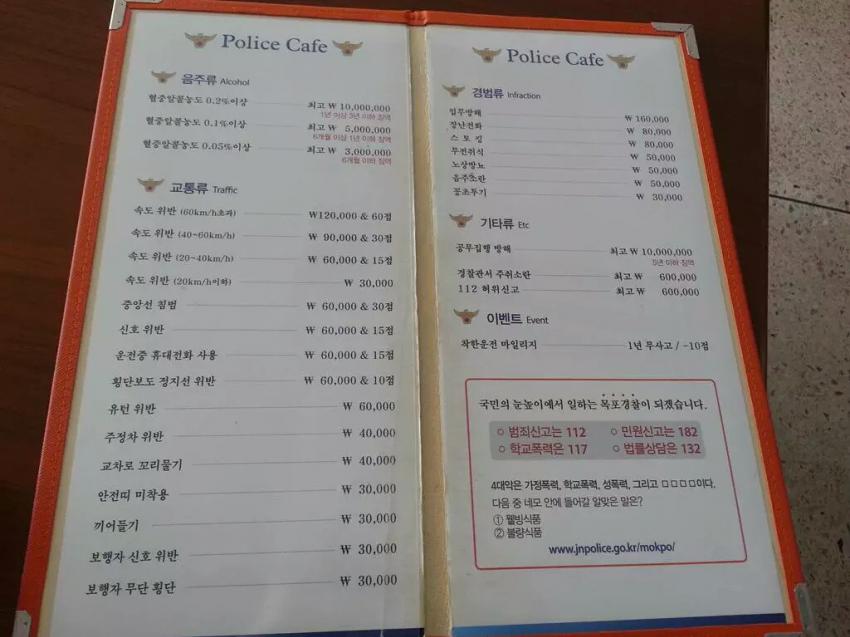 Police Cafe
음주류 Alcohol
혈중알콜농도 0.2%이상 최고 ₩ 10,000,000
1년 이상 3년 이하 징역
혈중알콜농도 0.1%이상 최고 ₩ 5,000,000
6개월 이상 1년 이하 징역
혈중알콜농도 0.05%이상 최고 ₩ 3,000,000
6개월 이하 징역
교통류 Traffic
속도 위반 (60km/h초과) ₩120,000 & 60점
속도 위반 (40~60km/h) ₩ 90,000 & 30점
속도 위반 (20~40km/h) ₩ 60,000 & 15점
속도 위반 (20km/h이하) ₩ 30,000
중앙선 침범 ₩ 60,000 & 30점
신호 위반 ₩ 60,000 & 15점
운전중 휴대전화 사용 ₩ 60,000 & 15점
횡단보도 정지선 위반 ₩ 60,000 & 10점
유턴 위반 ₩ 60,000
주정차 위반 ₩ 40,000
교차로 꼬리물기 ₩ 40,000
안전띠 미착용 ₩ 30,000
끼어들기 ₩ 30,000
보행자 신호 위반 ₩ 30,000
보행자 무단 횡단 ₩ 30,000
Police Cafe
경범류 Infraction
업무방해 ₩ 160,000
장난전화 ₩ 80,000
스토킹 ₩ 80,000
무전취식 ₩ 50,000
노상방뇨 ₩ 50,000
음주소란 ₩ 50,000
꽁초투기 ₩ 30,000
기타류 Etc
공무집행 방해 최고 ₩ 10,000,000
5년 이하 징역
경찰관서 주취소란 최고 ₩ 600,000
112 허위신고 최고 ₩ 600,000
이벤트 Event
착한운전 마일리지 1년 무사고 / -10점
국민의 눈높이에서 일하는 목포경찰이 되겠습니다.
○ 범죄신고는 112 ○ 민원신고는 182
○ 학교폭력은 117 ○ 법률상담은 132
4대악은 가정폭력, 학교폭력, 성폭력, 그리고 □□□□이다.
다음 중 네모 안에 들어갈 알맞은 말은?
① 웰빙식품
② 불량식품
www.jnpolice.go.kr/mokpo/